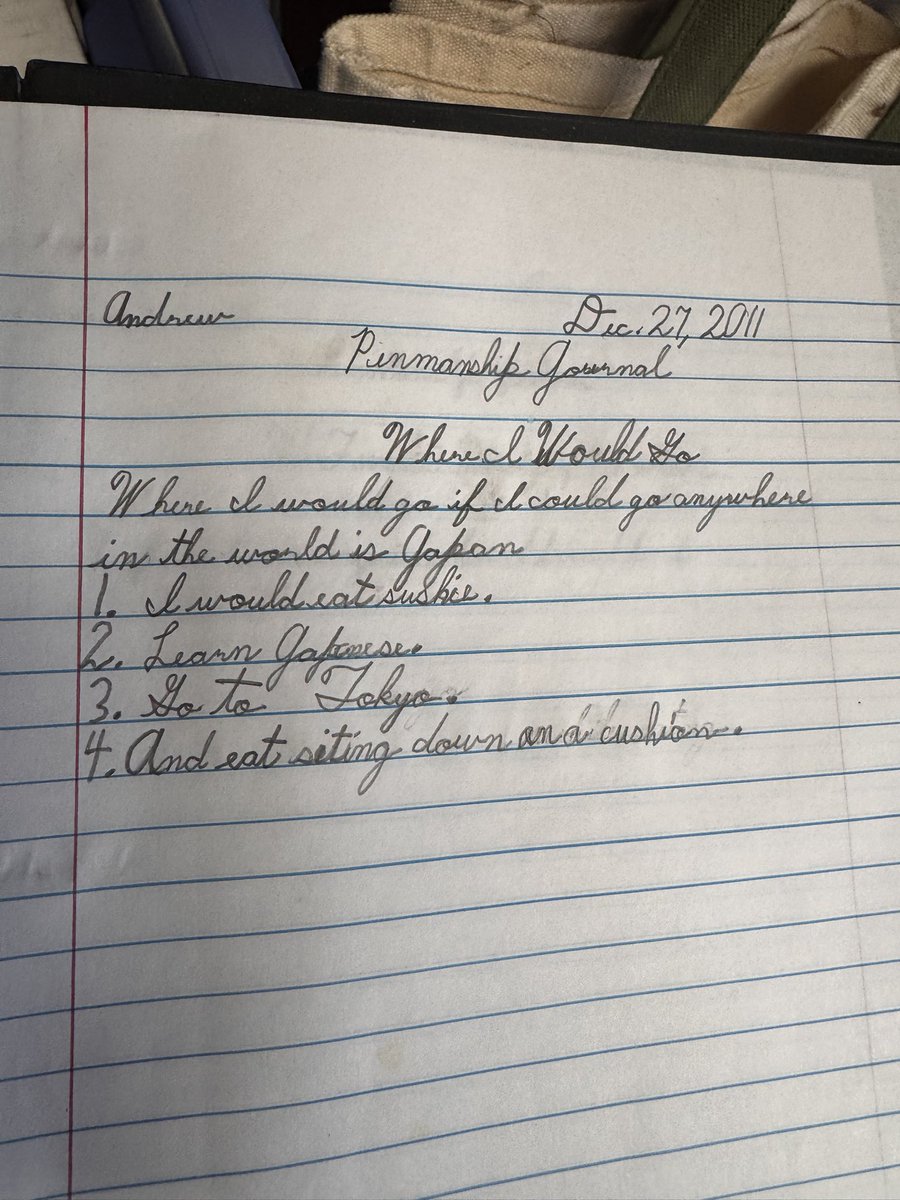 Andrew Dec. 27, 2011
Penmanship Journal
Where I Would Go
Where I would go if I could go anywhere
in the world is Japan
1. I would eat sushie.
2. Learn Japanese.
3. Go to Tokyo.
4. And eat siting down on a cushion.